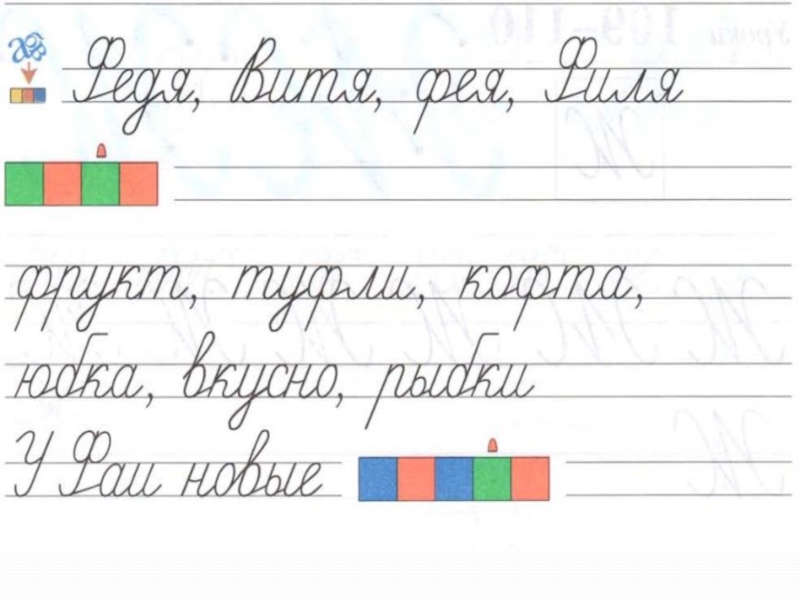 Федя, Витя, фея, Филя
фрукт, туфли, кофта,
юбка, вкусно, рыбки
У Фаи новые